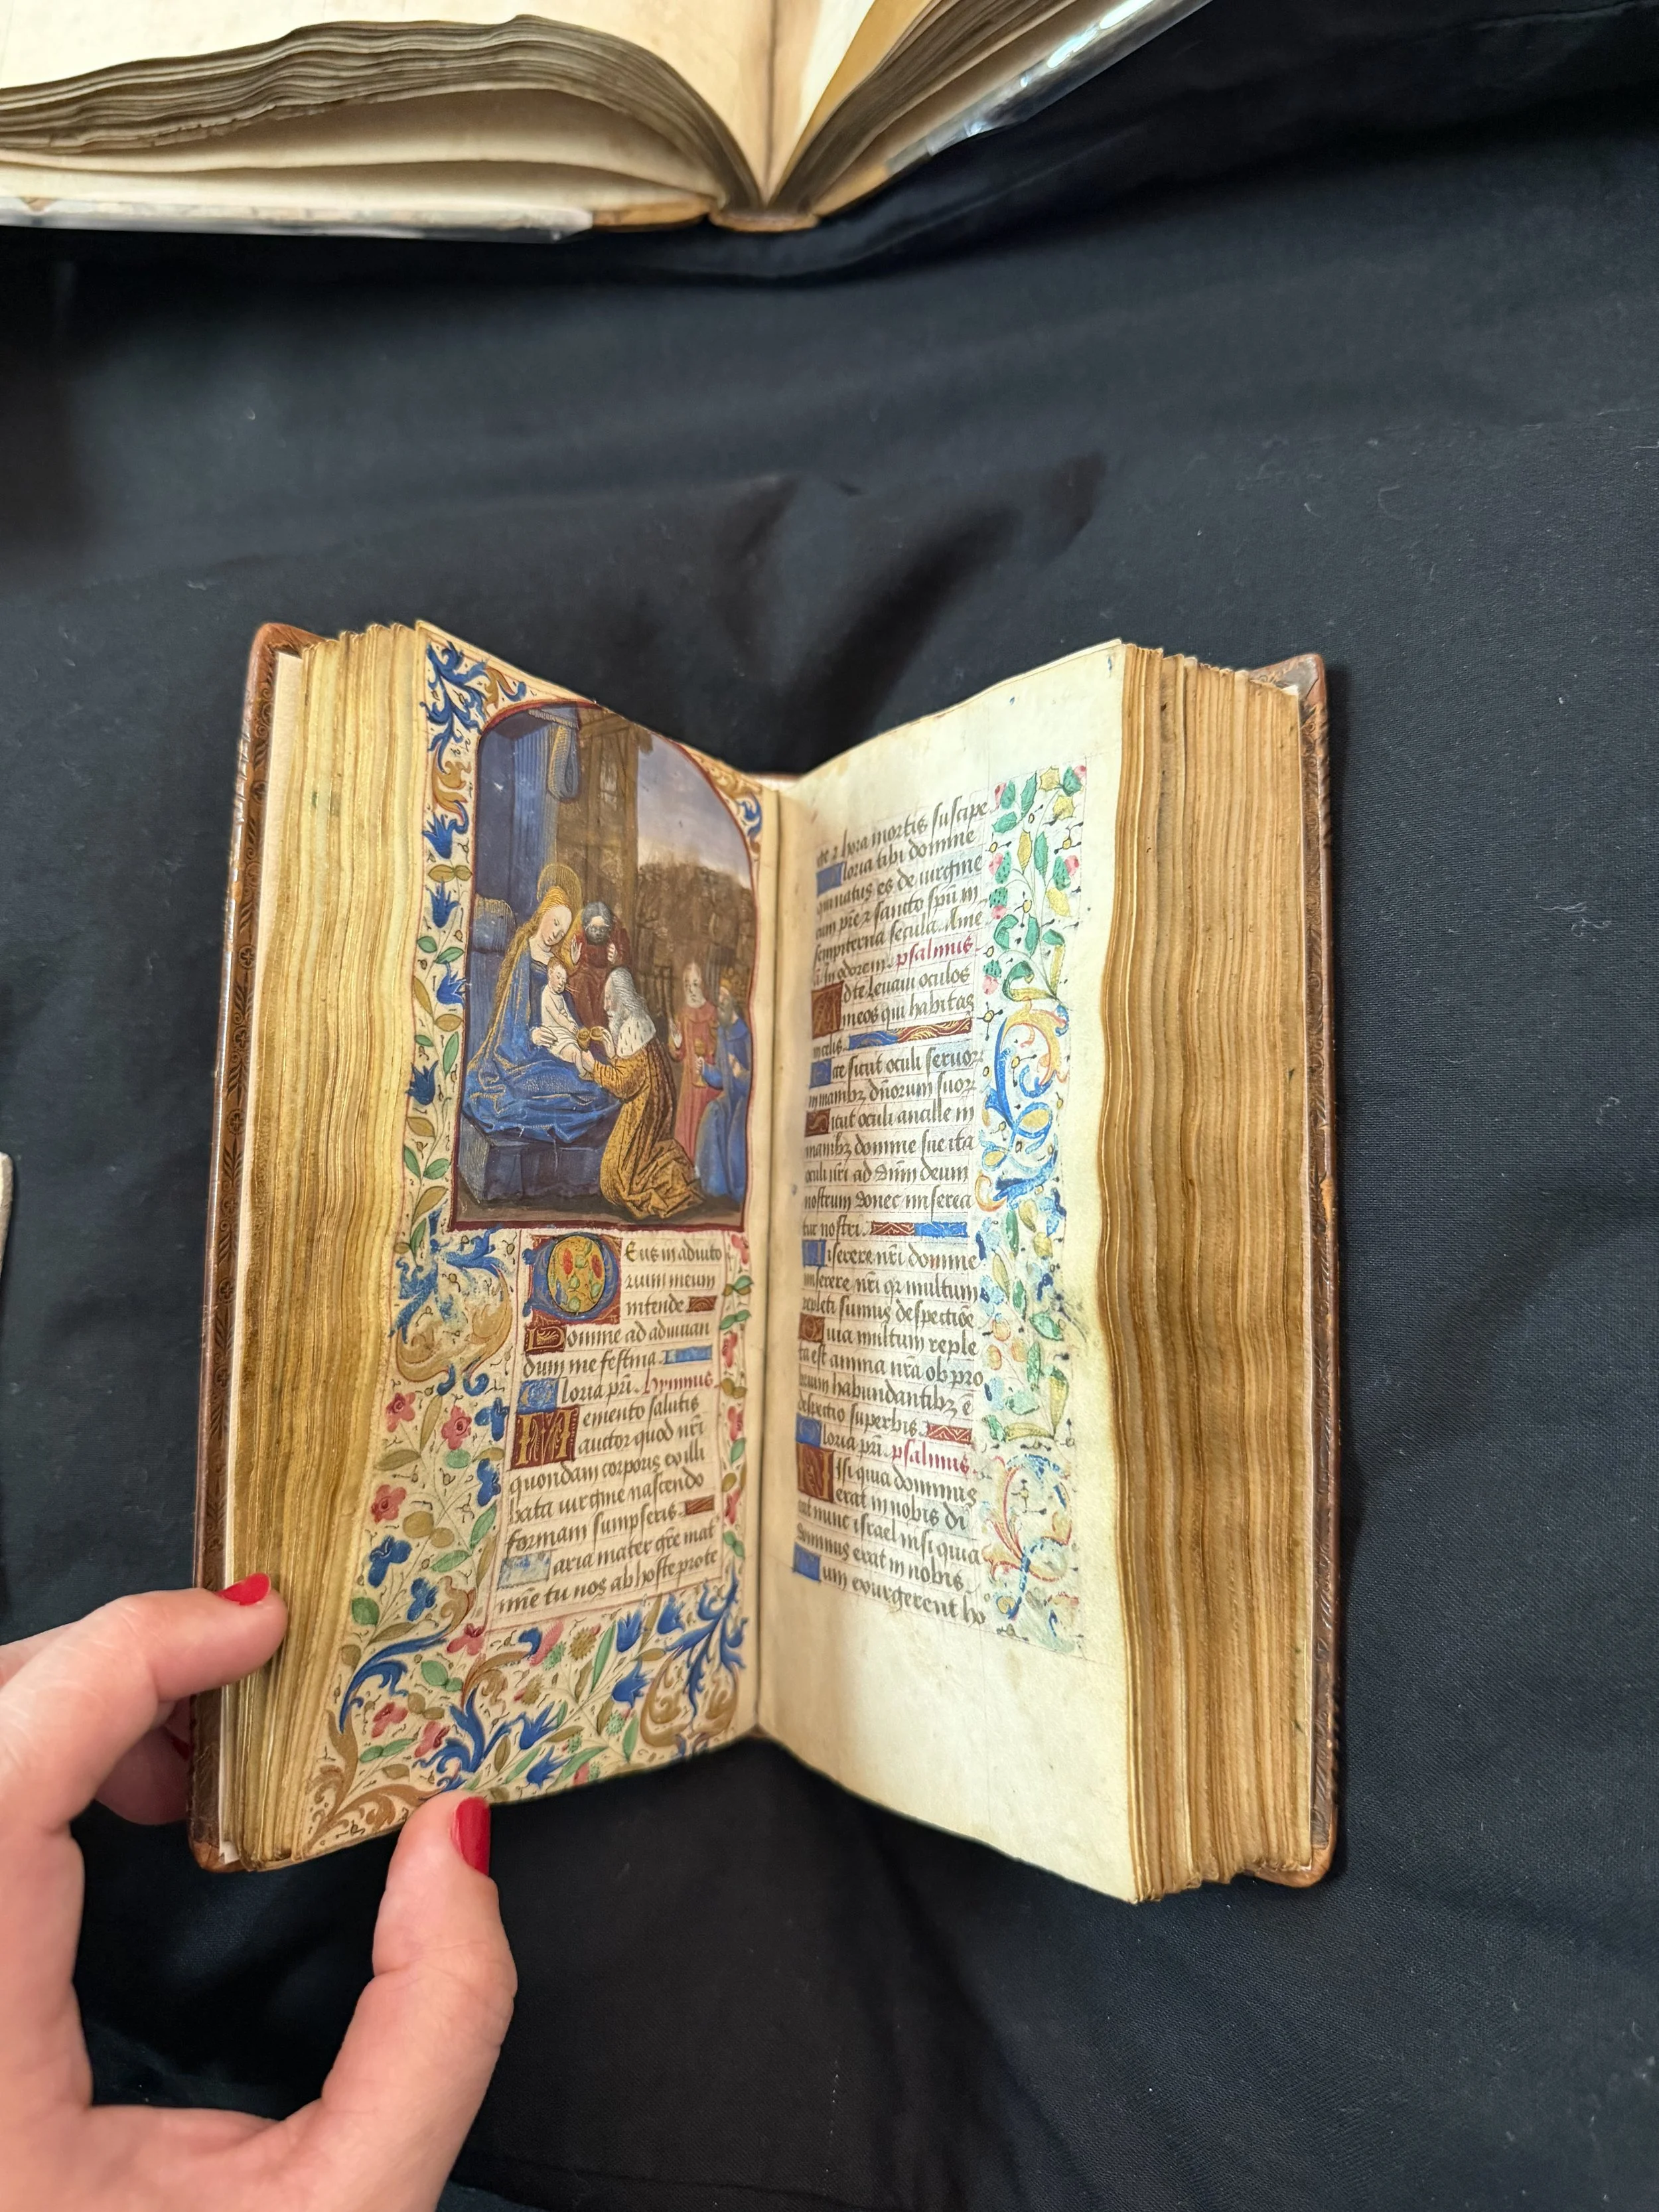 Eus in adiuto
rium meum
intende
Domine ad adiuuan
dum me festina
Gloria pri. hymnus
Memento salutis
auctor quod nri
quondam corporis ex illi
bata uirgine nascendo
formam sumpseris
Maria mater gre mat
mie tu nos ab hoste prote
ge z hora mortis suscipe
Gloria tibi domine
qui natus es de uirgine
cum pre z sancto spu in
sempiterna secula. Ame
in odorem. psalmus
Ad te leuaui oculos
meos qui habitas
in celis
Ecce sicut oculi seruor
in manibz dnorum suor
Sicut oculi ancille in
manibz domine sue ita
oculi nri ad dnm deum
nostrum donec miserea
tur nostri
Miserere nri domine
miserere nri qr multum
repleti sumus despectioe
Quia multum reple
ta est anima nra obpro
brium habundantibz et
despectio superbis
Gloria pri. psalmus
Nisi quia dominus
erat in nobis di
cat nunc israel nisi quia
dominus erat in nobis
Cum exurgerent ho